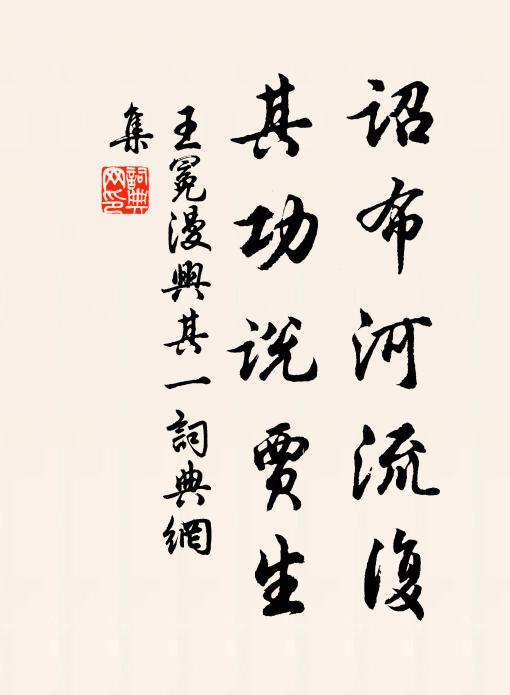 詔布河流復
其功説賈生
王冕漫興其一詞典網
集
詞典
网印